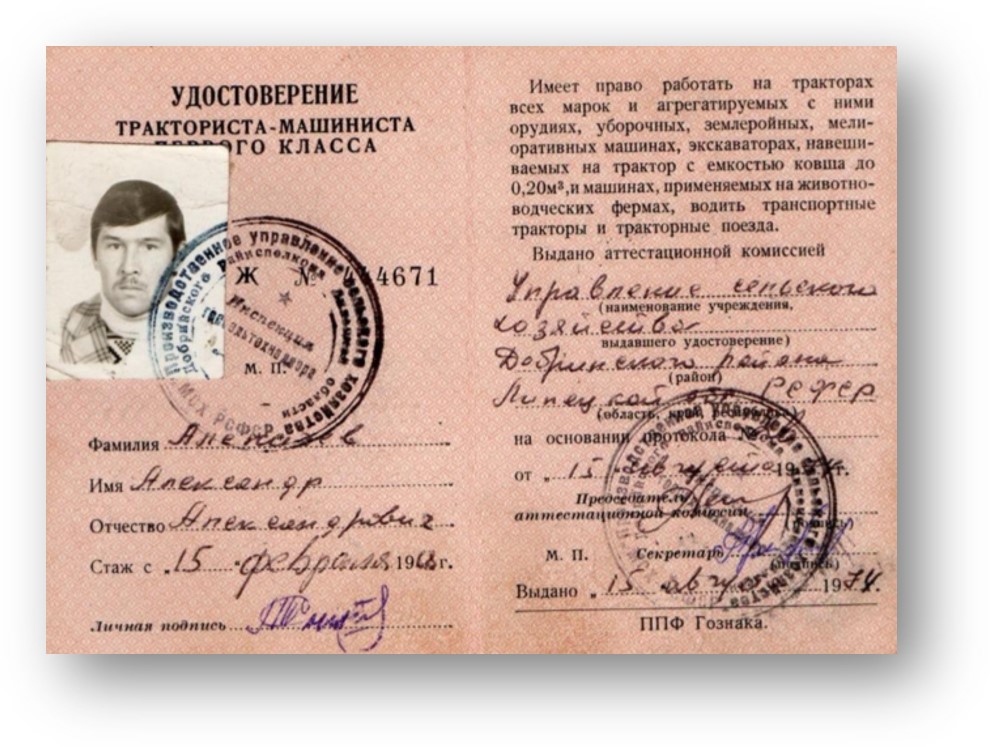 УДОСТОВЕРЕНИЕ
ТРАКТОРИСТА-МАШИНИСТА
ПЕРВОГО КЛАССА
Ж № 4671
Производственное управление сельского хозяйства
Добринского райисполкома Липецкой области
Инспекция
гостехнадзора
МСХ РСФСР
М. П.
Фамилия
Имя Александр
Отчество Александрович
Стаж с „15 февраля 1968г.
Личная подпись
Имеет право работать на тракторах
всех марок и агрегатируемых с ними
орудиях, уборочных, землеройных, мели-
оративных машинах, экскаваторах, навеши-
ваемых на трактор с емкостью ковша до
0,20м³,и машинах, применяемых на животно-
водческих фермах, водить транспортные
тракторы и тракторные поезда.
Выдано аттестационной комиссией
Управление сельского
(наименование учреждения,
хозяйства
выдавшего удостоверение)
Добринского района
(район)
Липецкой обл РСФСР
(область, край, республика)
на основании протокола №
от „15 августа 1974г.
Председатель
аттестационной комиссии
М. П. Секретарь
(подпись)
Выдано „15 август 1974.
ППФ Гознака.